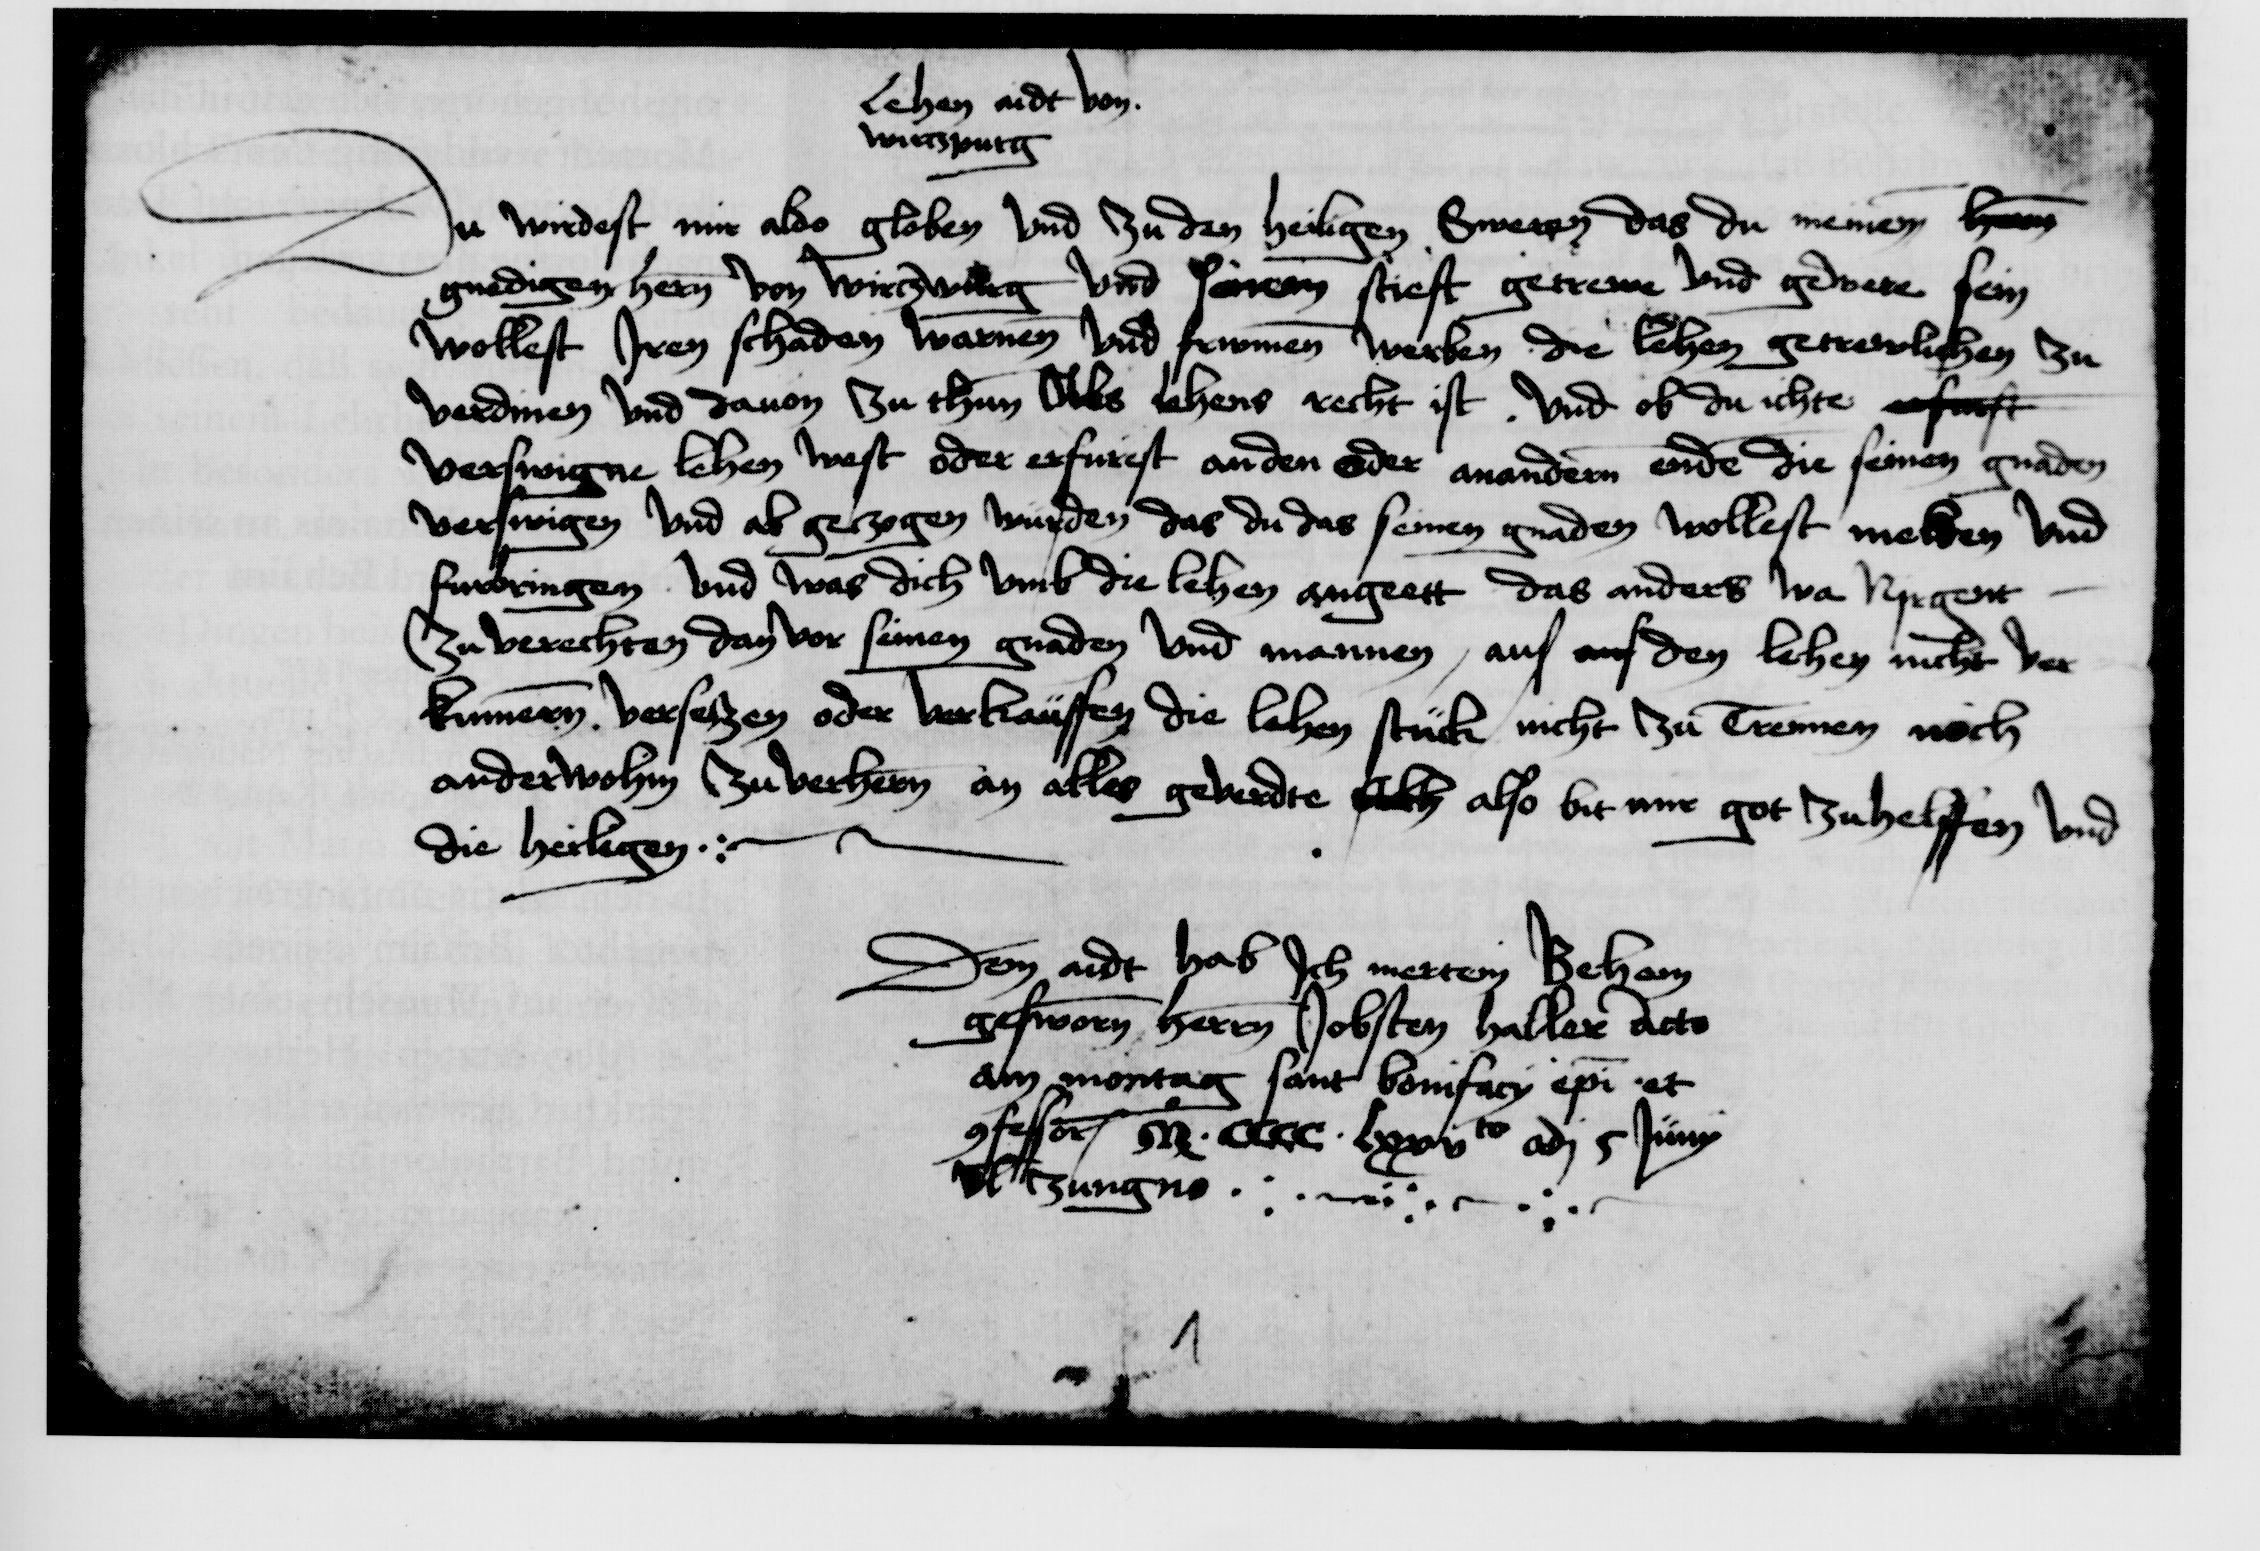 Lehen aidt von.
wirczpurg
Du wirdest mir also globen vnd zu den heiligen Sweren das du meinem hern
gnedigen hern von wirczwurg vnd seinem stieft getrewe vnd gewere sein
wollest Iren schaden warnen vnd frummen werben die lehen getrewlichen zu
verdinen vnd dauon zu thun Als lehens recht ist. vnd ob du ichte erfurst
verswigne lehen west oder erfurest an den oder anandern ende die seinen gnaden
verswigen vnd ab geczogen wurden das du das seinen gnaden wollest melden vnd
furbringen vnd was dich vmb die lehen angeett das anders wa Nirgent
zu verechten dan vor seinen gnaden vnd mannen, auf auf den lehen nicht ver
kumern. versetzen oder verkauffen die lehen stück nicht zu Trennen noch
anderwohin zu verhern an alles geverdte also bit mir got zu helffen vnd
die heiligen.
Den aidt hab Ich mertein Beham
gesworn herrn Jobsten haller Acto
am montag sant bonifacy epi et
9fessor M. CCCC. Lxxv to adj 5 Juny
tzungns.
1